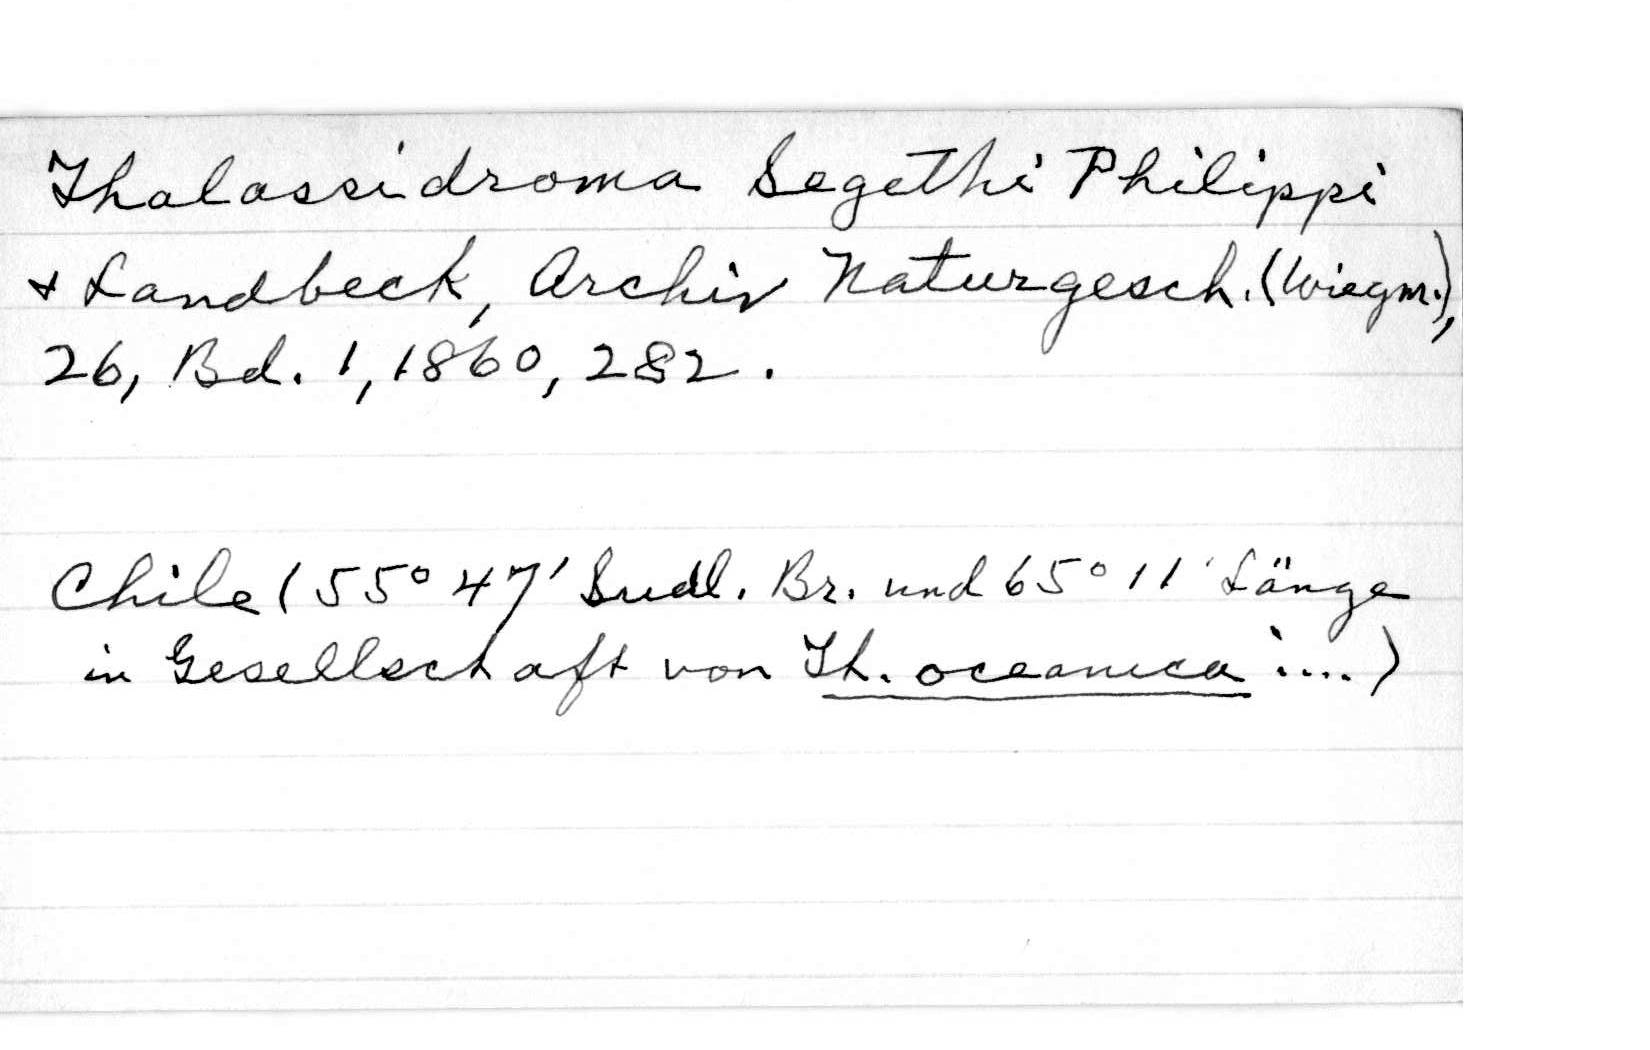 Thalassidroma Segethi Philippi
& Landbeck, Archiv Naturgesch. (Wiegm.),
26, Bd. 1, 1860, 282.
Chile (55° 47' Sudl. Br. und 65° 11' Länge
in Gesellschaft von Th. oceanica ....)